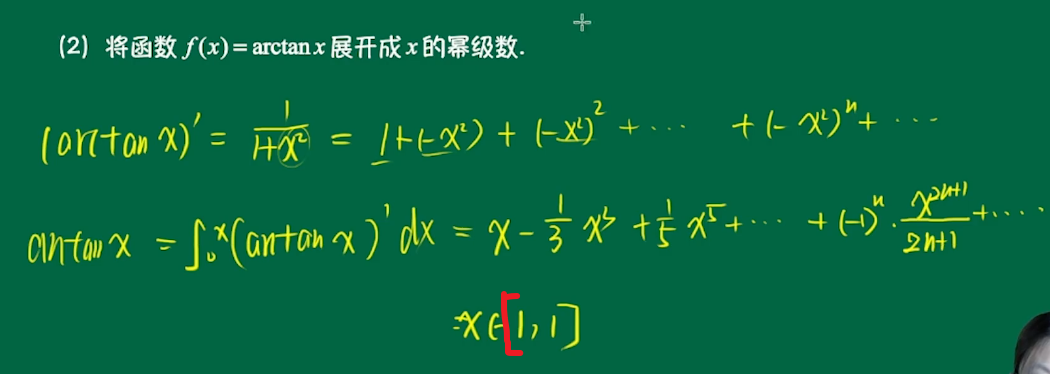 (2) 将函数 f(x)=arctan x 展开成 x 的幂级数.
(arctan x)' = 1/(1+x²) = 1+(-x²)+(-x²)²+⋯ +(-x²)ⁿ+⋯
arctan x = ∫₀ˣ(arctan x)'dx = x - 1/3 x³ + 1/5 x⁵ + ⋯ + (-1)ⁿ · x²ⁿ⁺¹/(2n+1) + ⋯
x∈[-1,1]